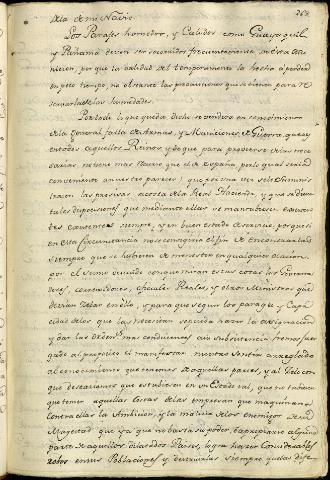 263
dela de mi Navio.
Los Parajes humedos, y Calidos como Guayaquil,
y Panamá deven ser socorridos frecuentemente, con esta mu-
nicion, por que la calidad del temperamento la hecha a perder
en poco tiempo, no obstante las precauciones que se tienen para re-
servarla de las humedades.
Por todo lo que queda dicho se vendrá en conocimiento
dela general falta de Armas, y Municiones de Guerra, que ay
en todos aquellos Reinos, y de que para proveerse de las nece-
sarias no tiene mas Recurso que el de España por lo qual sería
conveniente an
 parecer que por una vez se les suminis-
trasen las precisas acosta dela Real Hacienda, y que se diesen
tales disposiciones que mediante ellas se mantubiesen
existentes siempre, y en buen estado de servicio, porque si
en esta Circunstancia no se consigue el fin de encontrarlas
siempre que se hubieren de menester en qualquiera ocasion.
por el sumo descuido con que miran estas cosas los Governa-
dores, Contadores, oficiales Reales, y otros Ministros que
devian zelar en ello, y para que segun los parages, y Capa-
cidad delos que las necesitan se pueda hazer la asignacion
y dar las ordenes mas conducentes a su subsistencia, hemos juz-
gado al proposito el manifestar nuestro Sentir arreglado
al conocimiento que tenemos de aquellos paices, y al zelo con
que deseariamos que estubiesen en un Estado tal, que no tubiera
que temer aquellas Costas delas empresas que maquinan
Contra ellas la Ambision, y la malicia delos enemigos de su
Magestad que ya que no basta su poder, à apropiarse alguna
parte de aquellos dilatados Paises, logra hazer Considerables
robos en sus Poblaciones, y destruirlas siempre que las dife-